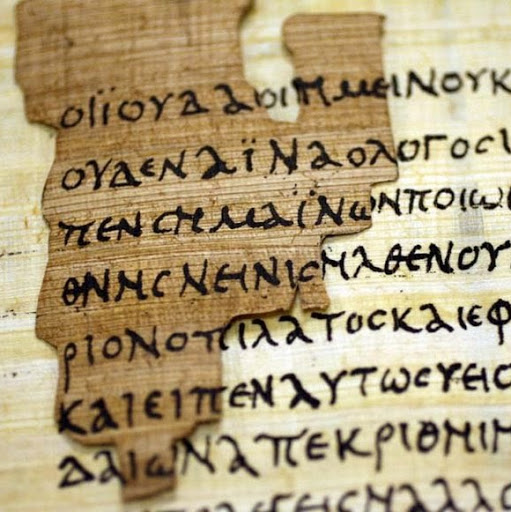 ΟΙΪΟΥΔΑΙΟΙΗΜΕΙΝΟΥΚ
ΟΥΔΕΝΑΪΝΑΟΛΟΓΟϹ
ΠΕΝϹΗΜΑΪΝΩΝΠΟΙΩ
ΘΝΗϹΚΕΙΝΙϹΗΛΘΕΝΟΥ
ΡΙΟΝΟΠΙΛΑΤΟϹΚΑΙΕΦ
ΚΑΙΕΙΠΕΝΑΥΤΩϹΥΕΙΟ
ΔΑΙΩΝΑΠΕΚΡΙΘΗΙΗ
ΛΕΓΕΙϹΗΑΛΛΟ